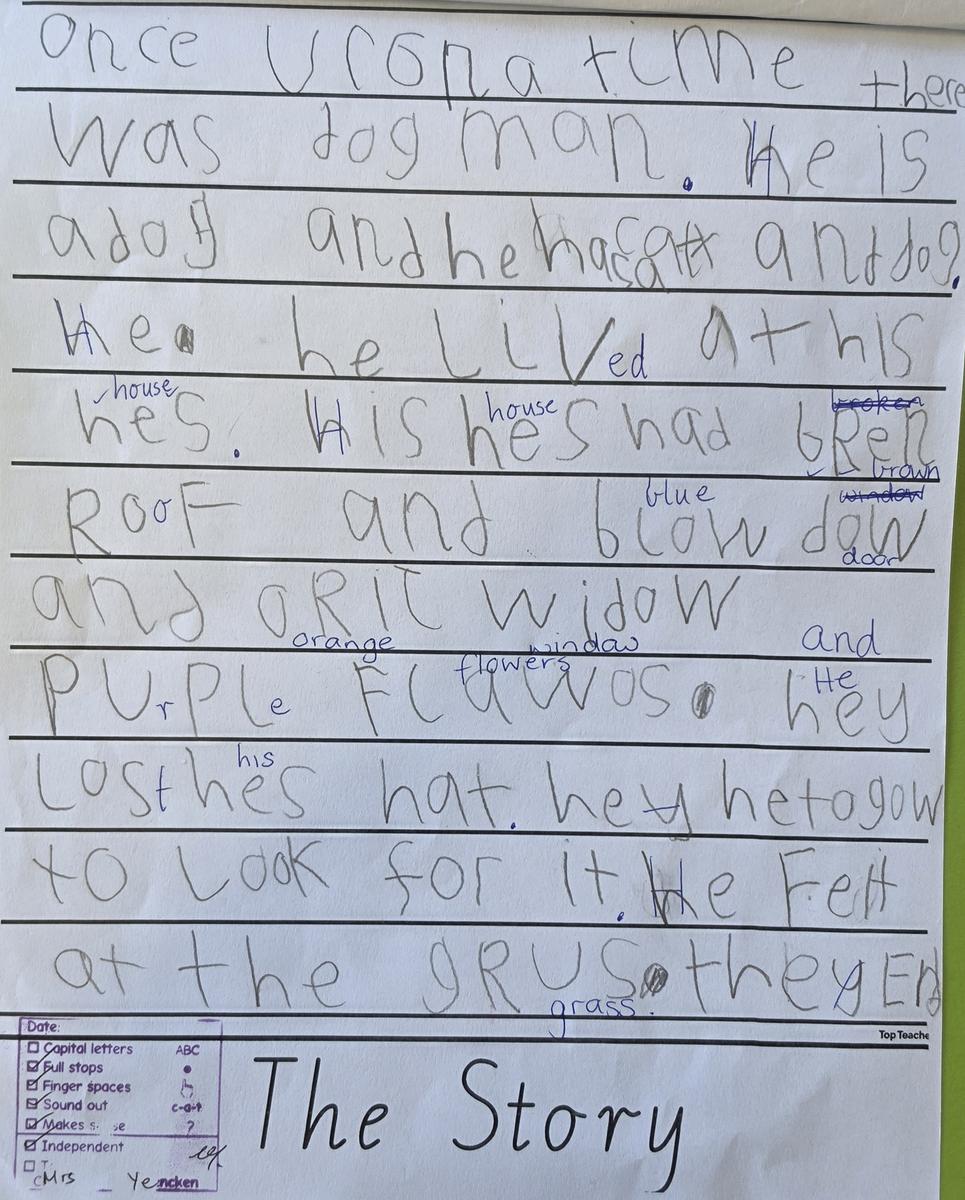 once upon a time there
was dog man. He is
a dog and he hac cat and dog.
He. he lived at his
house
hes. His hes had bRen
house broken
brown
RooF and blow dow
blue window
door
and ORIT widow
orange window and
PUrPLe FLawos. hey
flowers He
Lost hes hat. hey he to gow
his
to Look for it. He Felt
at the gRUS. they End
grass.
Top Teache
Date:
Capital letters ABC
Full stops
Finger spaces
Sound out c-a-t
Makes s se ?
Independent
Mrs Yencken
The Story